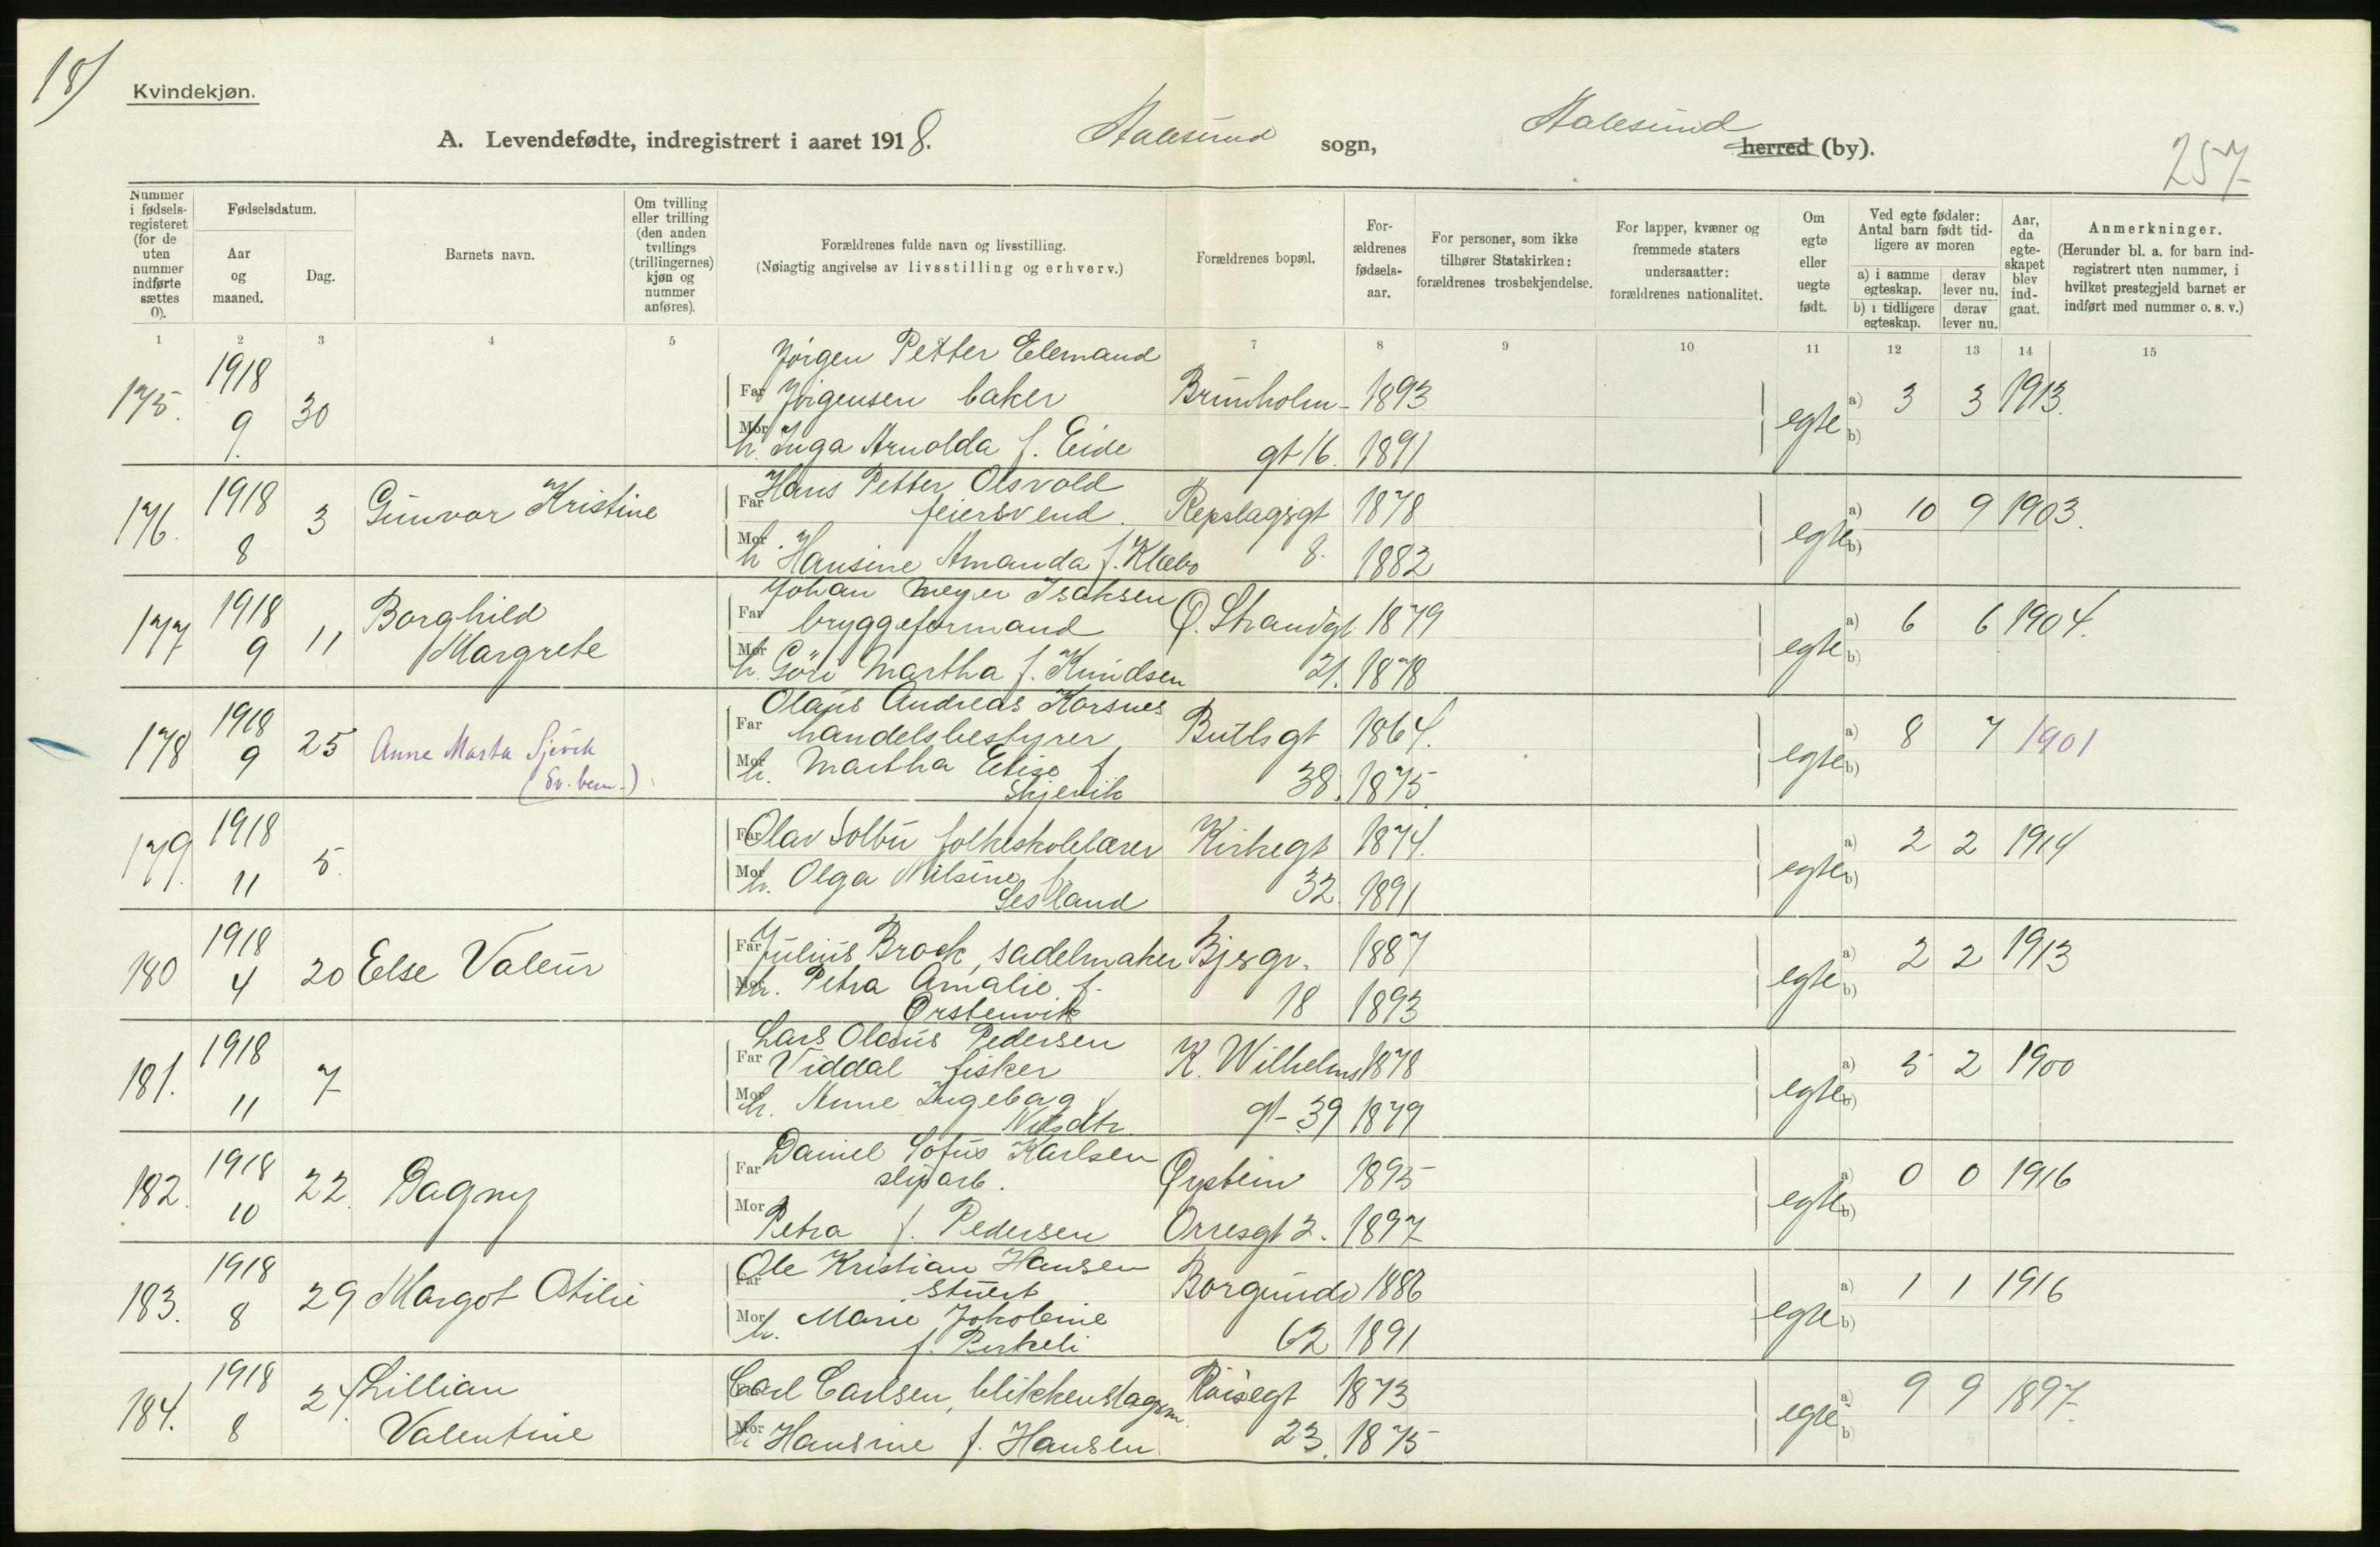 18)
Kvindekjøn.
A. Levendefødte, indregistrert i aaret 1918. Aalesund sogn, Aalesund herred (by).
257
Nummer i fødselsregisteret (for de uten nummer indførte sættes 0).
Fødselsdatum.
Aar og maaned.
Dag.
Barnets navn.
Om tvilling eller trilling (den anden tvillings (trillingernes) kjøn og nummer anføres).
Forældrenes fulde navn og livsstilling.
(Nøiagtig angivelse av livsstilling og erhverv.)
Forældrenes bopæl.
For-ældrenes fødsels-aar.
For personer, som ikke tilhører Statskirken: forældrenes trosbekjendelse.
For lapper, kvæner og fremmede staters undersaatter: forældrenes nationalitet.
Om egte eller uegte født.
Ved egte fødsler: Antal barn født tid-ligere av moren
a) i samme egteskap. derav lever nu.
b) i tidligere egteskap. derav lever nu.
Aar, da egte-skapet blev ind-gaat.
Anmerkninger.
(Herunder bl. a. for barn ind-registrert uten nummer, i hvilket prestegjeld barnet er indført med nummer o. s. v.)
1 2 3 4 5 7 8 9 10 11 12 13 14 15
Jørgen Petter Elemand
175. 1918 30 Far Jørgensen baker Brunholm- 1893 egte a) 3 3 1913.
9. Mor h. Inga Arnolda f. Eide gt 16. 1891 b)
Hans Petter Olsvold
176. 1918 3 Gunvor Kristine Far feiersvend. Repslagsgt 1878 egte a) 10 9 1903.
8 Mor h. Hansine Amanda f. Klæbo 8. 1882 b)
Johan Meyer Isaksen
177 1918 11 Borghild Far bryggeformand Ø. Strandgt. 1879 egte a) 6 6 1904.
9 Margrete Mor h. Göri Martha f. Knudsen 21. 1878 b)
Olaus Andreas Korsnes
178 1918 25 Anne Marta Sjevik Far handelsbestyrer Butlsgt 1864. egte a) 8 7 1901
9 (Ev. bem.) Mor h. Martha Elise f. 38. 1875. b)
Skjevik
179. 1918 5. Far Olav Solbu folkeskolelærer Kirkegt 1874. egte a) 2 2 1914
11 Mor h. Olga Nilsine f. 32. 1891 b)
180 1918 20 Else Valeur Far Julius Brock, sadelmaker Bjergv. 1887 egte a) 2 2 1913
4 Mor h. Petra Amalie f. 18 1893 b)
Ørstenvik
Lars Olaus Pedersen
181. 1918 7 Far Viddal fisker K. Wilhelms 1878 egte a) 5 2 1900
11 Mor h. Anne Ingeborg gt- 39 1879 b)
Nilsdtr
Daniel Sofus Karlsen
182. 1918 22. Dagny Far sliparb. Øystein 1895 egte a) 0 0 1916
10 Mor Petra f. Pedersen Orresgt 2. 1897 b)
Ole Kristian Hansen
183. 1918 29 Margot Otilie Far stuert Borgundv 1886 egte a) 1 1 1916
8 Mor h. Marie Jokobine 62 1891 b)
f. Birkeli
184. 1918 24. Lillian Far Carl Carlsen, blikkenslagerm. Röisegt 1873 egte a) 9 9 1897.
8 Valentine Mor h. Hansine f. Hansen 23. 1875 b)